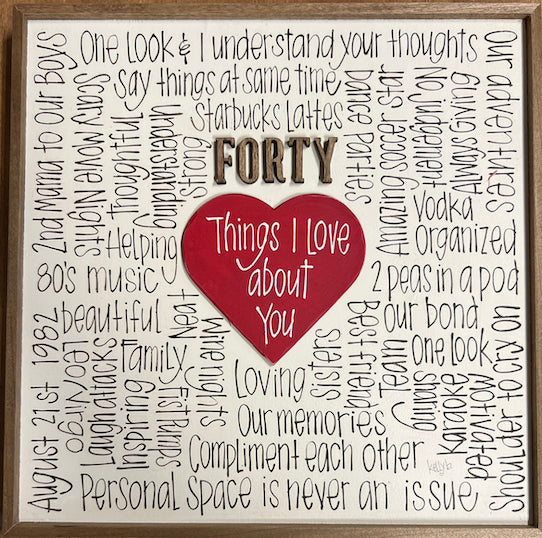 One Look & I understand your thoughts
Say things at same time
Starbucks Lattes
FORTY
Things I Love
about
You
2nd Mama to our Boys
Scary Movie Nights
Thoughtful
Understanding
Strong
Dance Parties
Amazing soccer star
No judgement
Always Giving
Our adventures
Helping
80's music
beautiful
Vodka
organized
2 peas in a pod
our bond
one look
August 21st 1982
Leo Virgo
Laugh attacks
Inspiring
Family
Fist Pumps
Neat
Wine nights
Loving
Sisters
Best friend
Team
Strong
Karaoke
Motivated
Shoulder to cry on
Our memories
Compliment each other
Personal Space is never an issue